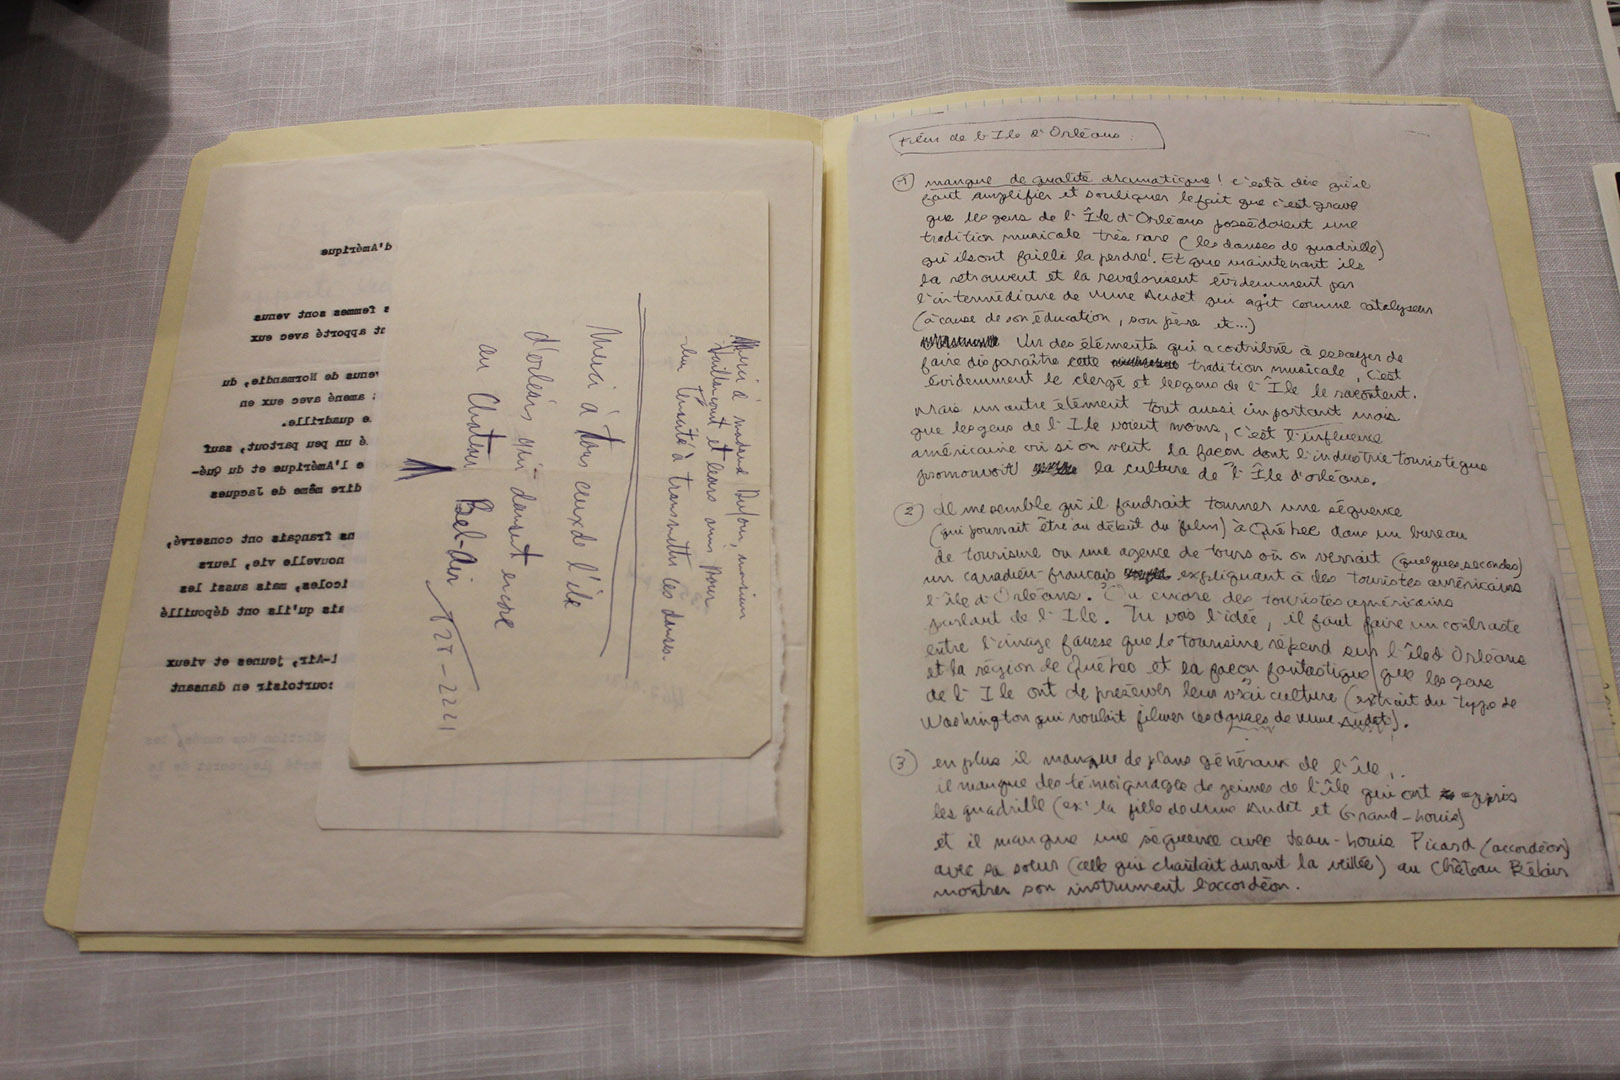 d'Amérique
s femmes sont venus
nt apporté avec eux
venus de Normandie, du
amené avec eux en
e quadrille.
é un peu partout, sauf
e l'Amérique et du Qué-
dire même de Jacques
ns français ont conservé,
nouvelle vie, leurs
icoles, mais aussi les
ais qu'ils ont dépouillé
l-Air, jeunes et vieux
courtoisie en dansant
Merci à madame Dufour, monsieur
Vaillancourt et leurs amis pour
leur ténacité à transmettre ces danses.
Merci à tous ceux de l'île
d'orléans qui dansent encore
au Chateau Bel-Air
828-2221
Film de l'Ile d'Orléans :
1 manque de qualité dramatique ! c'est à dire qu'il
faut amplifier et souligner le fait que c'est grave
que les gens de l'Île d'Orléans possédaient une
tradition musicale très rare (les danses de quadrille)
qu'ils ont failli la perdre ! Et que maintenant ils
la retrouvent et la revalorisent évidemment par
l'intermédiaire de Mme Audet qui agit comme catalyseur
(à cause de son éducation, son père et...)
Un des éléments qui a contribué à essayer de
faire disparaître cette tradition musicale, c'est
évidemment le clergé et les gens de l'Île le racontent.
Mais un autre élément tout aussi important mais
que les gens de l'Ile voient moins, c'est l'influence
américaine où si on veut la façon dont l'industrie touristique
promouvoit la culture de l'Île d'orléans.
2 Il me semble qu'il faudrait tourner une séquence
(qui pourrait être au début du film) à Québec dans un bureau
de tourisme ou une agence de tours où on verrait (quelques secondes)
un canadien-français expliquant à des touristes américains
l'île d'Orléans. Ou encore des touristes américains
parlant de l'Ile. Tu vois l'idée, il faut faire un contraste
entre l'image fausse que le tourisme répand sur l'île d'Orléans
et la région de Québec et la façon fantastique que les gens
de l'Ile ont de préserver leur vrai culture (extrait du type de
Washington qui voulait filmer ces danses de Mme Audet).
3 en plus il manque de plans généraux de l'île,
il manque des témoignages de jeunes de l'île qui ont appris
les quadrille (ex: la fille de Mme Audet et Grand-Louis)
et il manque une séquence avec Jean-Louis Picard (accordéon)
avec sa soeur (celle qui chantait durant la veillée) au Château Bélair
montrer son instrument l'accordéon.